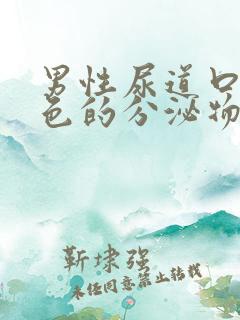 男性尿道口
色的分泌物
靳埭强
未经同意禁止转载